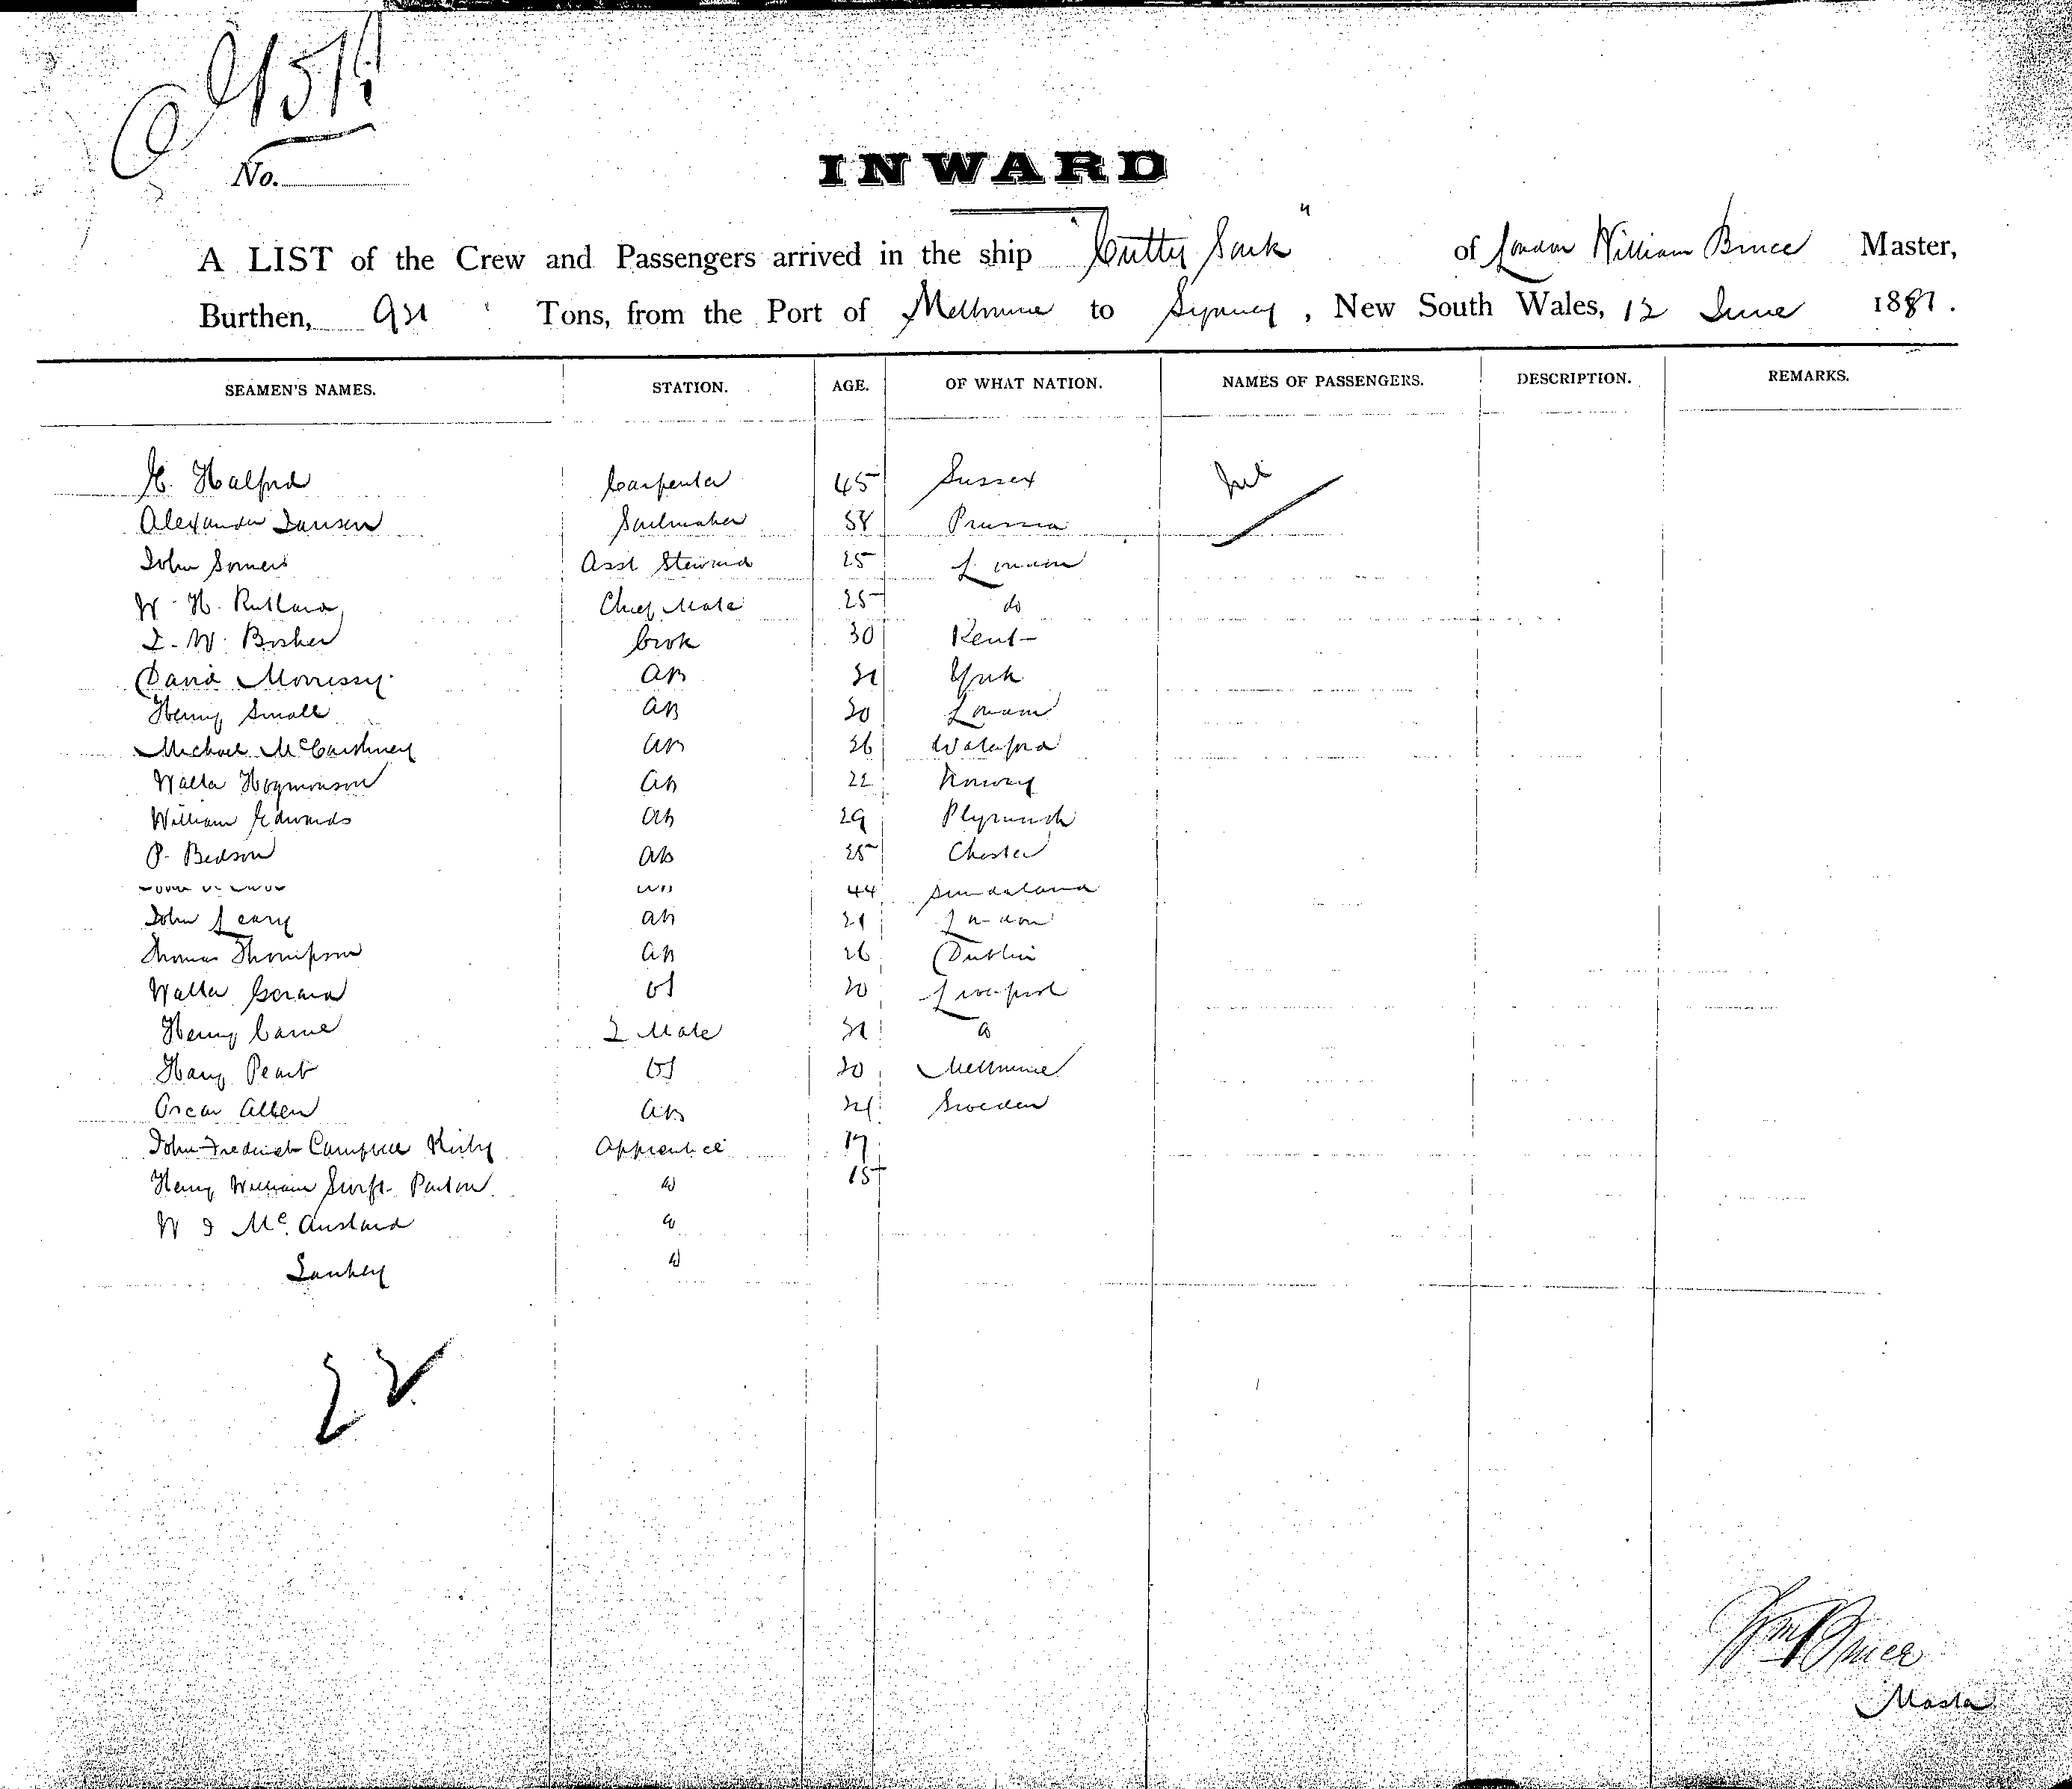 No.
INWARD
A LIST of the Crew and Passengers arrived in the ship "Cutty Sark" of London William Bruce Master,
Burthen, 921 Tons, from the Port of Melbourne to Sydney, New South Wales, 12 June 1881.
SEAMEN'S NAMES. STATION. AGE. OF WHAT NATION. NAMES OF PASSENGERS. DESCRIPTION. REMARKS.
Halford Carpenter 45 Sussex Nil
Alexander Jansen Sailmaker 58 Prussia
John Somers Asst Steward 25 London
W. H. Rutland Chief Mate 25 do
Bosher Cook 30 Kent
David Morrissy AB 21 York
Henry Small AB 30 London
Michael McCarthney AB 26 Waterford
Walter Hogmonson AB 22 Norway
William Edwards AB 29 Plymouth
P. Bedson AB 25 Chester
44 Sunderland
John Leary AB 21 London
Thomas Thompson AB 26 Dublin
Walter OS 20 Liverpool
Henry Carne 2 Mate do
Harry OS 20 Melbourne
Oscar Allen AB Sweden
John Frederick Campbell Kirby Apprentice 17
Henry William Swift Paxton do 15
W I Mc. Ausland do
Sankey do
22
Wm Bruce
Master